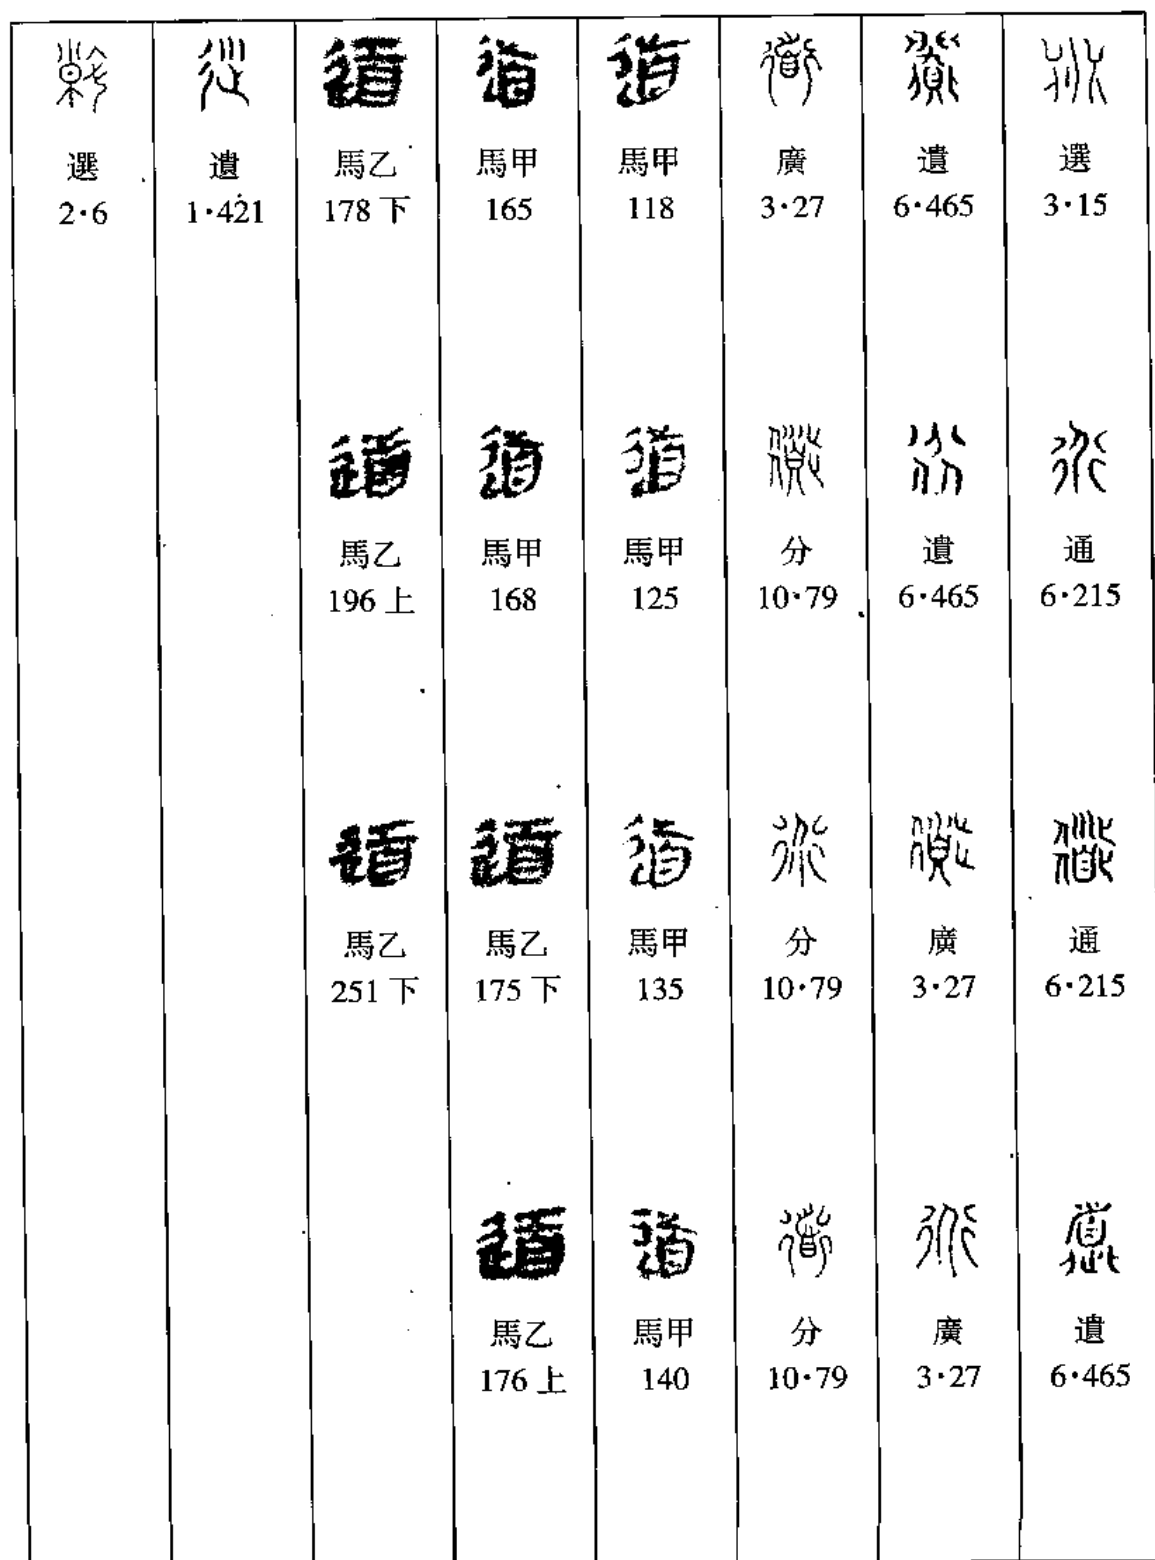 選
3·15
通
6·215
通
6·215
遺
6·465
遺
6·465
遺
6·465
廣
3·27
廣
3·27
廣
3·27
分
10·79
分
10·79
分
10·79
道
馬甲
118
道
馬甲
125
道
馬甲
135
道
馬甲
140
道
馬甲
165
道
馬甲
168
道
馬乙
175 下
道
馬乙
176 上
道
馬乙
178 下
道
馬乙
196 上
道
馬乙
251 下
遺
1·421
選
2·6